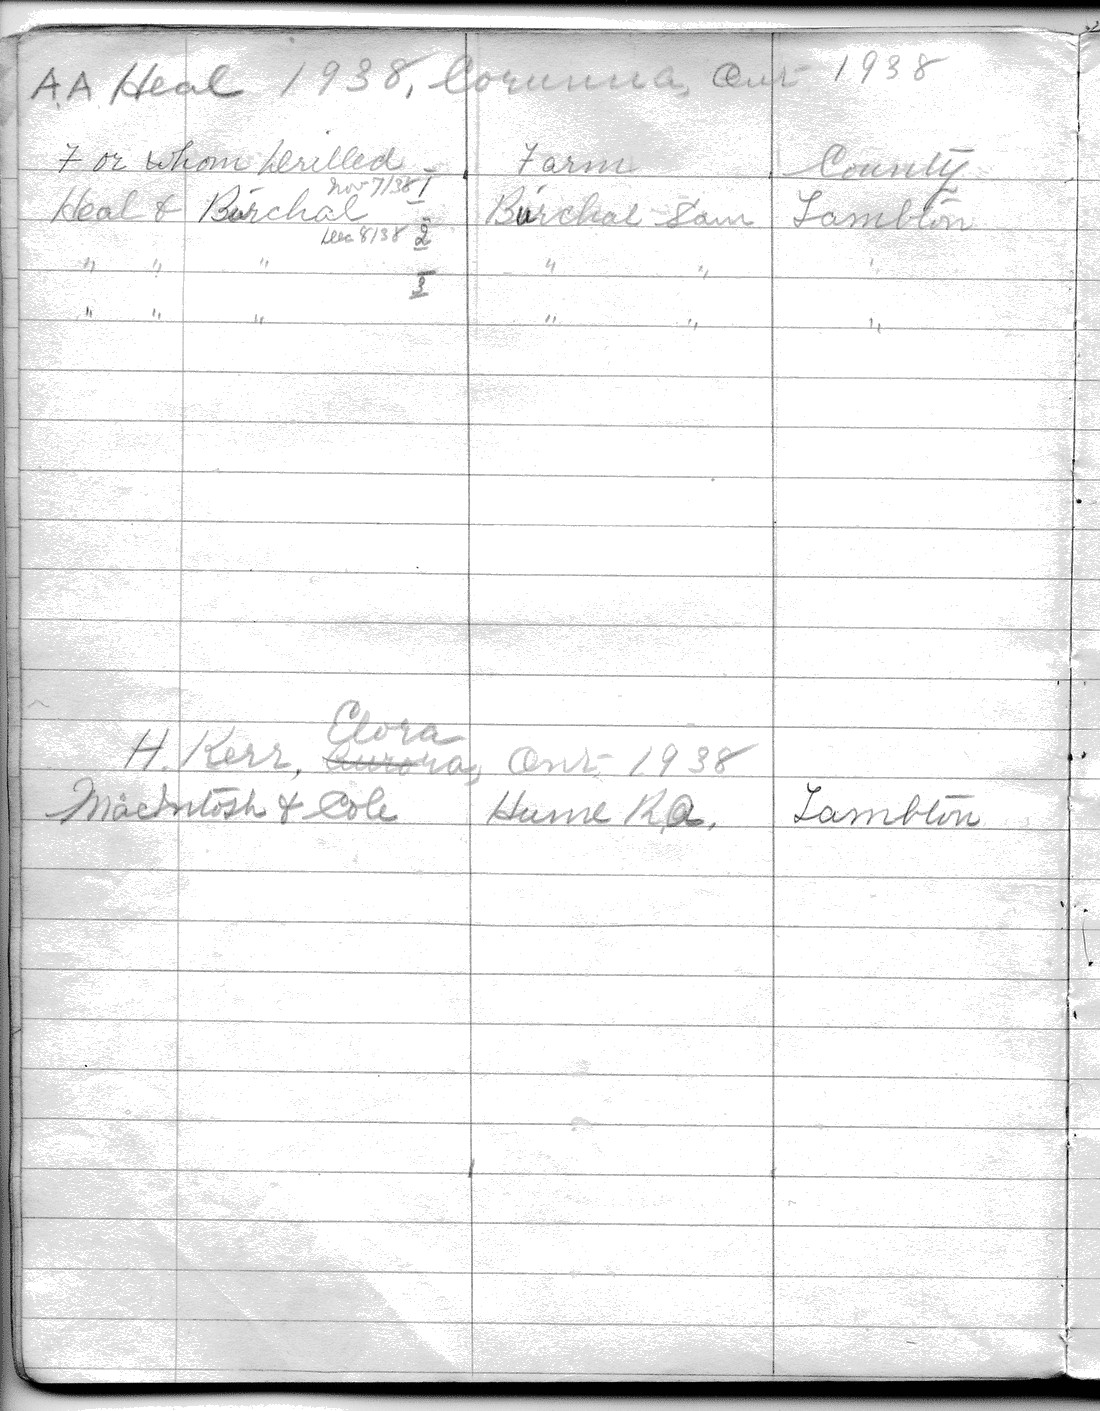 A.A. Heal 1938, Corunna, Ont- 1938
For whom Drilled Farm County
Nov 7/38 1
Heal & Burchal Burchal - Sam Lambton
Dec 8/38 2
" " " " " "
3
" " " " " "
Elora
H. Kerr, Aurora, Ont- 1938
MacIntosh & Cole Hume R.A. Lambton